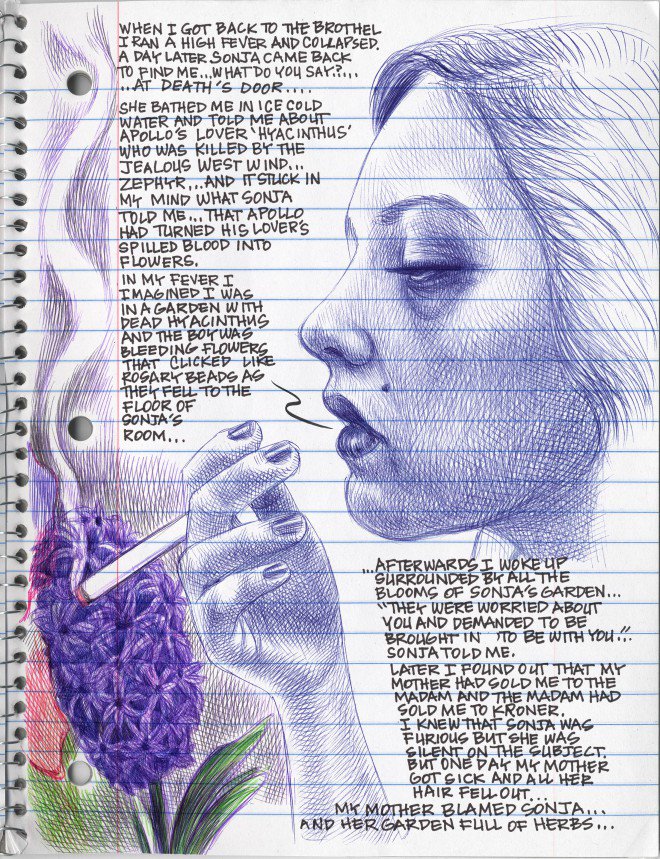 WHEN I GOT BACK TO THE BROTHEL
I RAN A HIGH FEVER AND COLLAPSED.
A DAY LATER SONJA CAME BACK
TO FIND ME...WHAT DO YOU SAY?...
...AT DEATH'S DOOR....
SHE BATHED ME IN ICE COLD
WATER AND TOLD ME ABOUT
APOLLO'S LOVER 'HYACINTHUS'
WHO WAS KILLED BY THE
JEALOUS WEST WIND...
ZEPHYR...AND IT STUCK IN
MY MIND WHAT SONJA
TOLD ME...THAT APOLLO
HAD TURNED HIS LOVER'S
SPILLED BLOOD INTO
FLOWERS.
IN MY FEVER I
IMAGINED I WAS
IN A GARDEN WITH
DEAD HYACINTHUS
AND THE BOY WAS
BLEEDING FLOWERS
THAT CLICKED LIKE
ROSARY BEADS AS
THEY FELL TO THE
FLOOR OF
SONJA'S
ROOM...
...AFTERWARDS I WOKE UP
SURROUNDED BY ALL THE
BLOOMS OF SONJA'S GARDEN...
"THEY WERE WORRIED ABOUT
YOU AND DEMANDED TO BE
BROUGHT IN TO BE WITH YOU."
SONJA TOLD ME.
LATER I FOUND OUT THAT MY
MOTHER HAD SOLD ME TO THE
MADAM AND THE MADAM HAD
SOLD ME TO KRONER.
I KNEW THAT SONJA WAS
FURIOUS BUT SHE WAS
SILENT ON THE SUBJECT.
BUT ONE DAY MY MOTHER
GOT SICK AND ALL HER
HAIR FELL OUT...
MY MOTHER BLAMED SONJA...
AND HER GARDEN FULL OF HERBS...